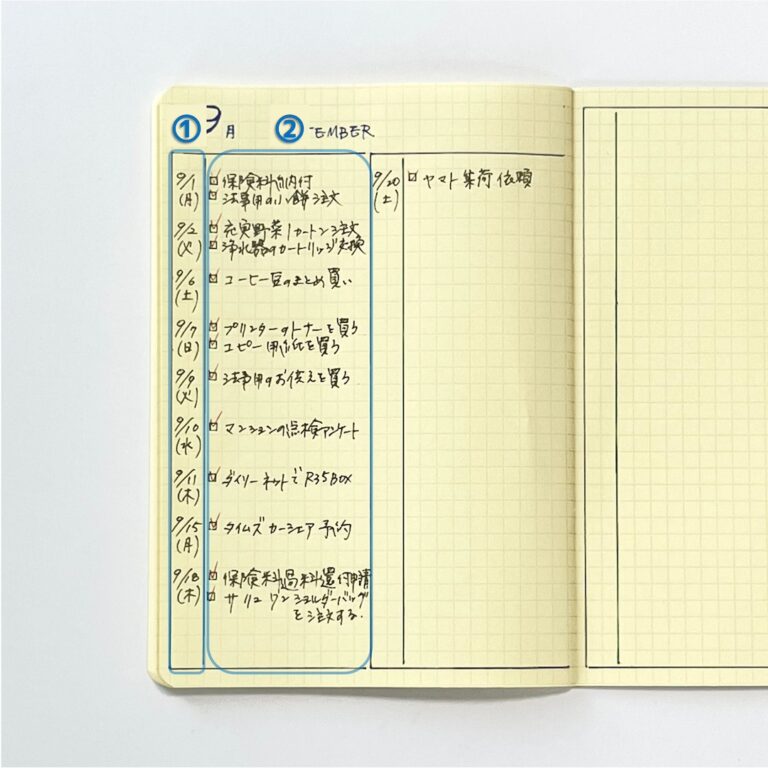 ① 月 ② EMBER
9/1 保険料納付
(月) 法事用の小餅注文
9/2 花実野菜1カートン注文
(火) 浄水器のカートリッジ交換
9/6 コーヒー豆のまとめ買い
(土)
9/7 プリンターのトナーを買う
(日) コピー用紙を買う
9/9 法事用のお供えを買う
(火)
9/10 マンションの点検アンケート
(水)
9/11 ダイソーネットで R35BOX
(木)
9/15 タイムズカーシェア予約
(月)
9/18 保険料過料還付申請
(木) サリュ ワンショルダーバッグ
を注文する.
9/20 ヤマト集荷依頼
(土)